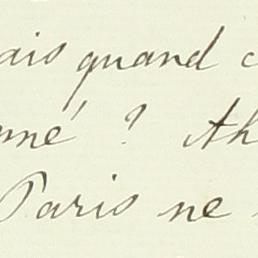 ais quand c
mé ? Ah
Paris ne